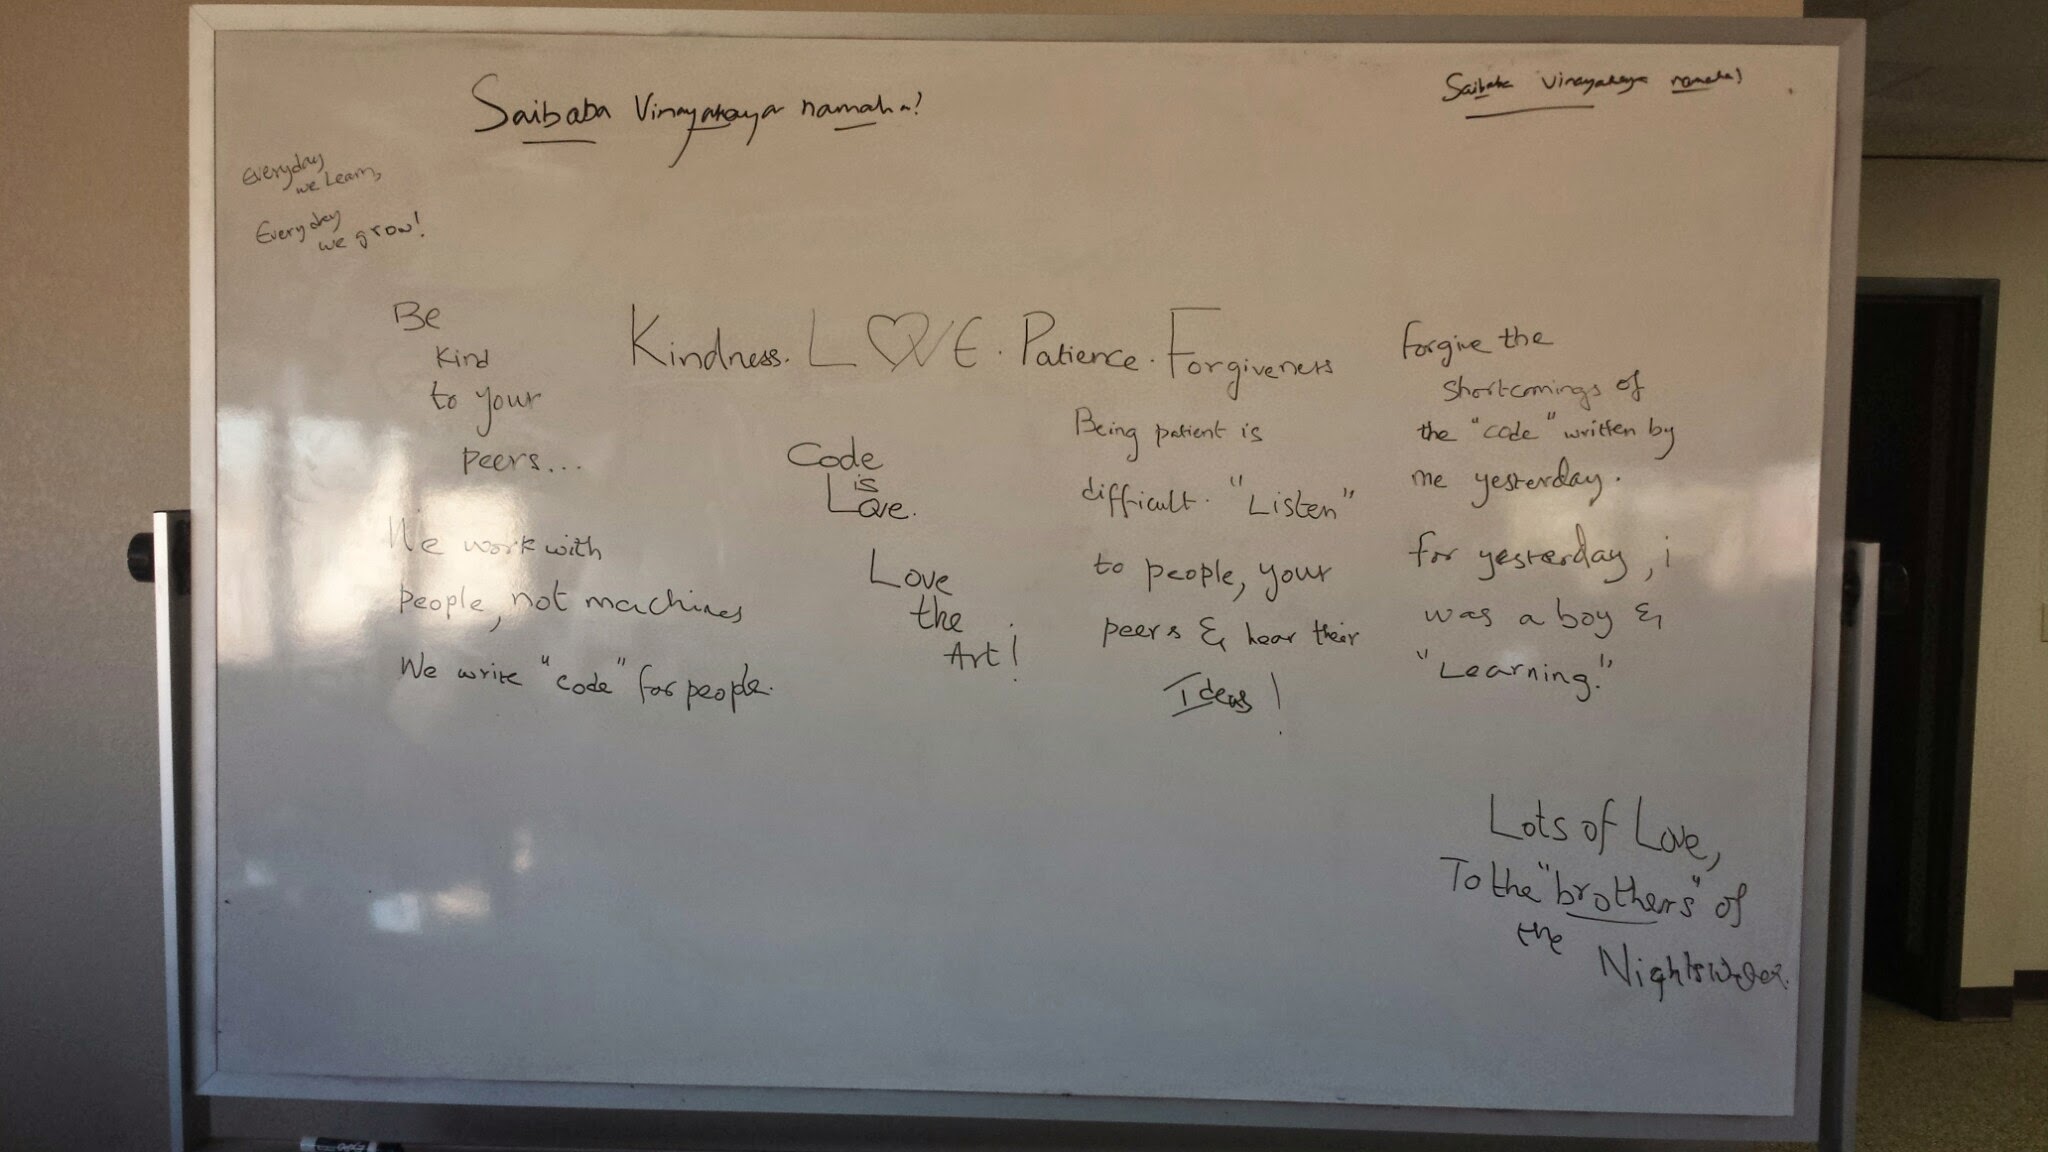 Saibaba Vinayakaya namaha!
Saibaba Vinayakaya namaha!
Everyday
we Learn,
Everyday
we grow!
Kindness. LOVE. Patience. Forgiveness
Be
Kind
to your
peers...
We work with
people, not machines
We write "code" for people.
Code
is
Love.
Love
the
Art!
Being patient is
difficult. "Listen"
to people, your
peers & hear their
Ideas!
Forgive the
Shortcomings of
the "code" written by
me yesterday.
for yesterday, i
was a boy &
"Learning."
Lots of Love,
To the "brothers" of
the
EXPO